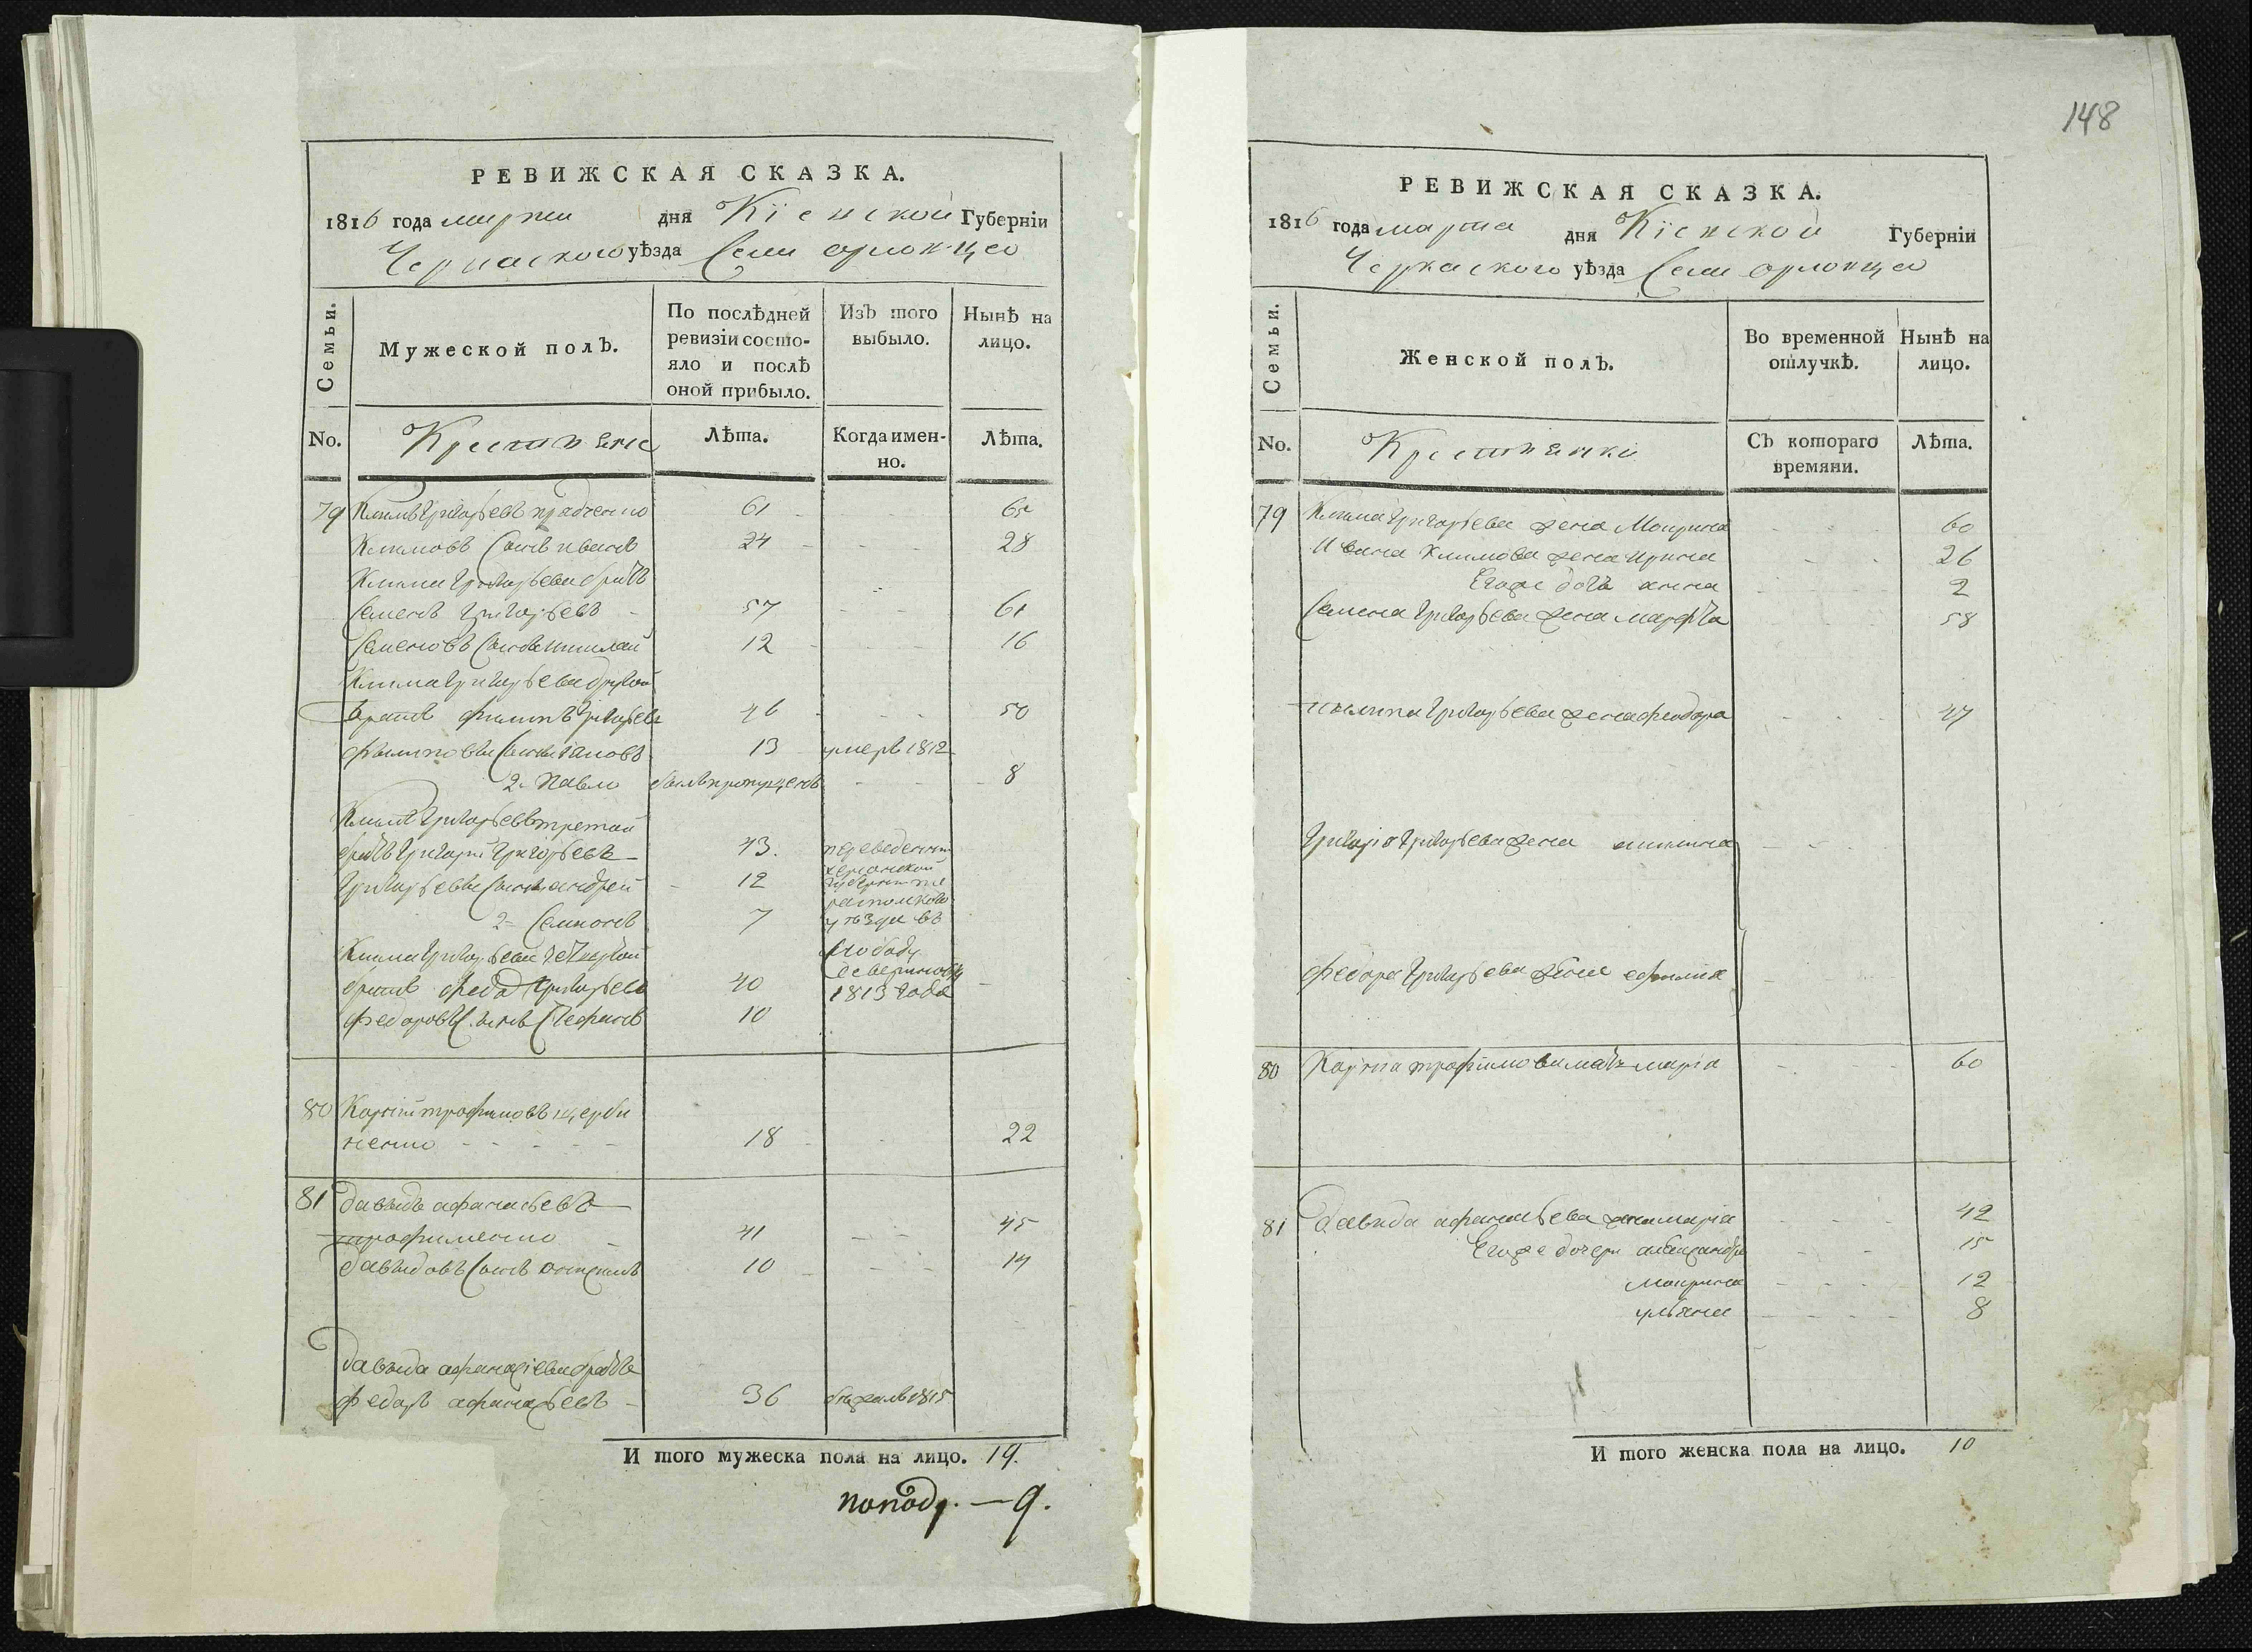 РЕВИЖСКАЯ СКАЗКА.
1816 года марта дня Кіевской Губерніи
Черкаского уѣзда Села орловца
Семьи.
Мужеской полъ.
По послѣдней
ревизіи состо-
яло и послѣ
оной прибыло.
Изъ того
выбыло.
Нынѣ на
лицо.
No.
Крестьяне
Лѣта.
Когда имен-
но.
Лѣта.
79 Климъ григорьевъ 61 65
Климовъ Сынъ иванъ 24 28
Клима григорьева братъ
Семенъ григорьевъ 57 61
Семеновъ Сынъ 12 16
Клима григорьева другой
братъ филипъ григорьевъ 46 50
филиповы Сыны 13 умеръ 1812
2. Павло былъ пропущенъ 8
Клима григорьевъ третій
братъ григорій григорьевъ 43. переведены
херсонской
григорьевы Сыны андрей 12 губерніи
2= Семионъ 7 уѣзда въ
Клима григорьева четвертой слободу
братъ федор григорьевъ 40 севериновку
1813 года
федоровъ Сынъ Стефанъ 10
80 Карпъ трофимовъ щерби
ненко 18 22
81 давыдъ афанасьевъ
трофименко 41 45
давыдовъ Сынъ 10 14
давыда афанасіева братъ
федоръ афанасьевъ 36 бѣжалъ 1815
И того мужеска пола на лицо. 19.
—9.
148
РЕВИЖСКАЯ СКАЗКА.
1816 года марта дня Кіевской Губерніи
Черкаского уѣзда Села орловца
Семьи.
Женской полъ.
Во временной
отлучкѣ.
Нынѣ на
лицо.
No.
Крестьянки
Съ котораго
времяни.
Лѣта.
79 Клима григорьева жена Мокрина 60
Ивана Климова жена ирина 26
Егоже дочь анна 2
Семена григорьева жена марфа 58
филипа григорьева жена феодора 47
григорія григорьева жена акилина
федора григорьева жена ефимия
80 Карпа трофимова мать марія 60
81 давида афанасьева жена марія 42
Егоже дочери александра 15
Мокрина 12
ульяна 8
И того женска пола на лицо. 10